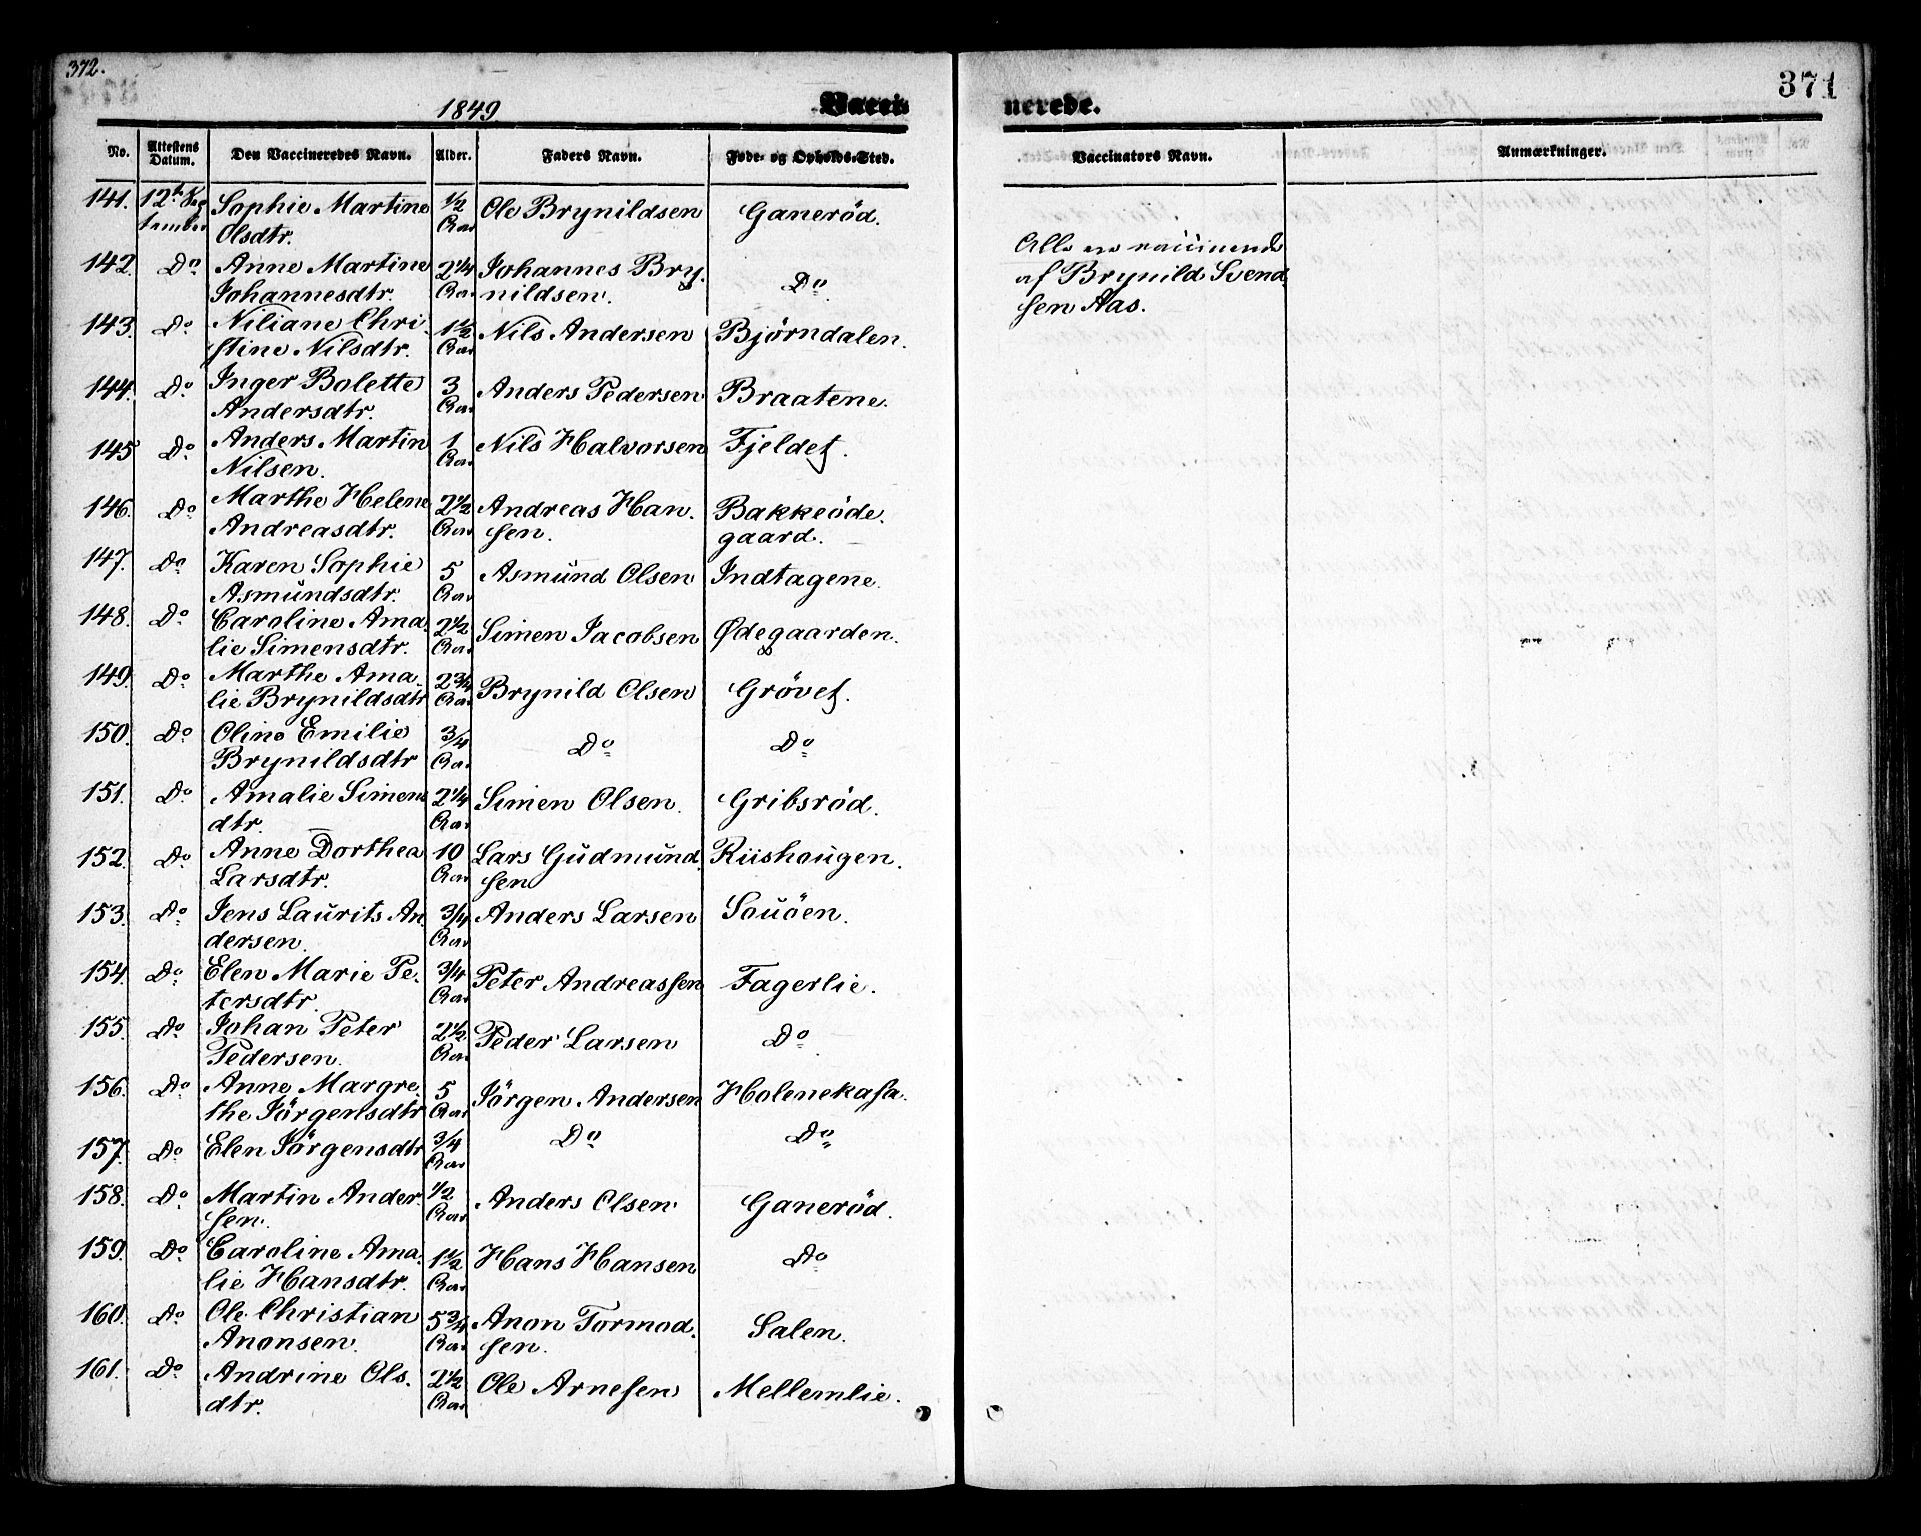 372.
371
1849.
Vacci-
nerede.
No.
Attestens Datum.
Den Vaccineredes Navn.
Alder.
Faders Navn.
Føde- og Opholds-Sted.
Vaccinators Navn.
Anmærkninger.
141. 12te Sep Sophie Martine 1/2 Ole Brynildsen Ganeröd.
tember Olsdtr. Aar
142. Do Anne Martine 2 1/4 Johannes Bry- Do
Johannesdtr. Aar nildsen.
143. Do Niliane Chri- 1 1/2 Nils Andersen Björndalen.
stine Nilsdtr. Aar
144. Do Inger Bolette 3 Anders Pedersen Braatene.
Andersdtr. Aar
145 Do Anders Martin 1 Nils Halvorsen Fjeldet.
Nilsen. Aar
146. Do Marthe Helene 2 1/2 Andreas Han- Bakkeöde-
Andreasdtr. Aar sen. gaard.
147. Do Karen Sophie 5 Asmund Olsen Indtagene.
Asmundsdtr. Aar
148. Do Caroline Ama- 2 1/2 Simen Jacobsen Ødegaarden.
lie Simensdtr. Aar
149. Do Marthe Ama- 2 3/4 Brynild Olsen Grövet.
lie Brynildsdtr Aar
150. Do Oline Emilie 3/4 Do Do
Brynildsdtr Aar
151. Do Amalie Simens 2 1/4 Simen Olsen. Gribsröd.
dtr. Aar
152. Do Anne Dorthea 10 Lars Gudmund Riishougen.
Larsdtr. Aar sen
153. Do Jens Laurits An 3/4 Anders Larsen Souöen.
dersen. Aar
154. Do Elen Marie Pe- 3/4 Peter Andreassen Fagerlie.
tersdtr. Aar
155. Do Johan Peter 2 1/2 Peder Larsen Do
Pedersen. Aar
156. Do Anne Margre- 5 Jörgen Andersen Holenekasa.
the Jörgensdtr Aar
157. Do Elen Jörgensdtr 3/4 Do Do
Aar
158. Do Martin Ander- 1/2 Anders Olsen Ganeröd.
sen. Aar
159. Do Caroline Ama- 1 1/2 Hans Hansen Do
lie Hansdtr. Aar
160. Do Ole Christian 5 3/4 Anon Tormod- Salen.
Anonsen. Aar sen.
161. Do Andrine Ols- 2 1/2 Ole Arnesen Mellemlie.
dtr. Aar
Alle ere vaccinerede
af Brynild Svend
sen Aas.